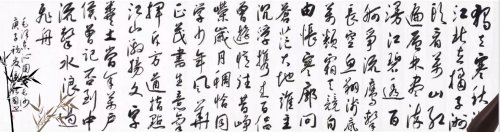 独立寒秋湘
江北去橘子洲
头看万山红
遍层林尽染
漫江碧透百
舸争流鹰击
长空鱼翔浅底
万类霜天竞自
由怅寥廓问
苍茫大地谁主
沉浮携来百侣
曾游忆往昔峥
嵘岁月稠恰同
学少年风华
正茂书生意气
挥斥方遒指点
江山激扬文字
粪土当年万户
侯曾记否到中
流击水浪遏
飞舟